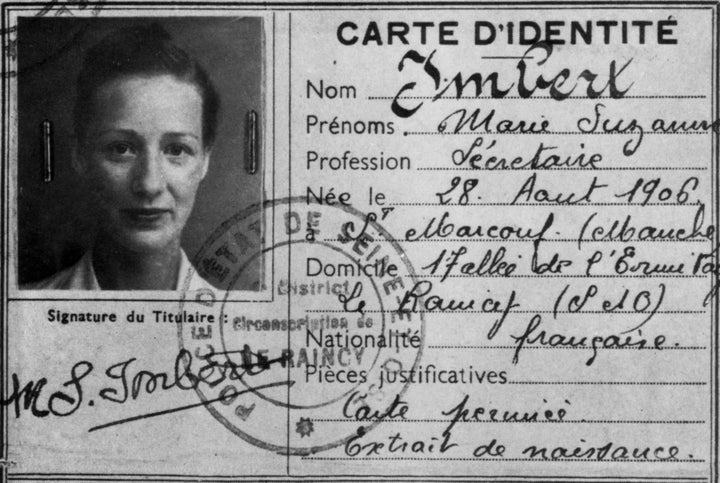 CARTE D'IDENTITÉ
Nom Imbert
Prénoms Marie Suzanne
Profession Sécretaire
Née le 28. Aout 1906.
à St Marcouf. (Manche
Domicile 17 allée de l'Ermitag
Le Raincy (S & O)
Nationalité française.
Pièces justificatives
Carte périmée.
Extrait de naissance.
Signature du Titulaire :
M S. Imbert
POLICE D'ETAT DE SEINE ET OISE
District
Circonscription de
LE RAINCY